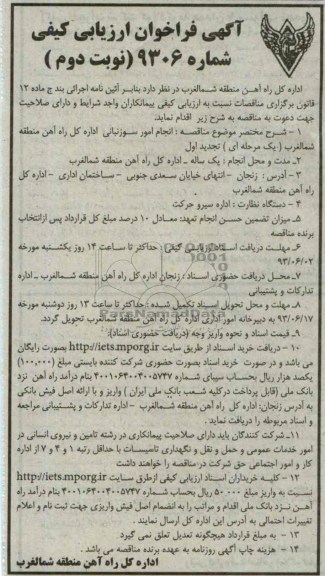 آگهی فراخوان ارزیابی کیفی
شماره ۹۳۰۶ (نوبت دوم)
اداره کل راه آهن منطقه شمالغرب در نظر دارد بنابر آئین نامه اجرائی بند ج ماده ۱۲
قانون برگزاری مناقصات نسبت به ارزیابی کیفی پیمانکاران واجد شرایط و دارای صلاحیت
جهت دعوت به مناقصه به شرح زیر اقدام نماید
۱ - شرح مختصر موضوع مناقصه : انجام امور سوزنبانی اداره کل راه آهن منطقه
شمالغرب ( یک مرحله ای ) تجدید اول
۲- مدت و محل انجام : یک ساله ـ اداره کل راه آهن منطقه شمالغرب
۳ - آدرس : زنجان - انتهای خیابان سعدی جنوبی - ساختمان اداری - اداره کل
راه آهن منطقه شمالغرب
۴ - دستگاه نظارت : اداره سیرو حرکت
۵ـ میزان تضمین حسن انجام تعهد: معادل ۱۰ درصد مبلغ کل قرارداد پس ازانتخاب
برنده مناقصه
۶ـ مهلت دریافت اسناد ارزیابی کیفی : حداکثر تا ساعت ۱۴ روز یکشنبه مورخه
۹۳/۰۶/۰۲
۷ـ محل دریافت حضوری اسناد : زنجان اداره کل راه آهن منطقه شمالغرب ـ اداره
تدارکات و پشتیبانی
۸ـ مهلت و محل تحویل اسناد تکمیل شده : حداکثر تا ساعت ۱۳ روز دوشنبه مورخه
۹۳/۰۶/۱۷ به دبیرخانه امور اداری اداره کل راه آهن منطقه شمالغرب تحویل گردد.
۹ـ قیمت اسناد و نحوه واریز وجه (دریافت حضوری اسناد):
۱۰ - دریافت خرید اسناد از طریق سایت http://iets.mporg.ir بصورت رایگان
می باشد و در صورت خرید اسناد بصورت حضوری شرکت کننده بایستی مبلغ (۱۰۰,۰۰۰)
یکصد هزار ریال بحساب سیبای شماره ۴۰۰۱۰۶۴۰۰۴۰۰۵۷۴۷ بنام درآمد راه آهن نزد
بانک ملی (قابل پرداخت درکلیه شعب بانک ملی ایران ) واریز و با ارائه اصل فیش بانکی
به آدرس زنجان: اداره کل راه آهن منطقه شمالغرب - اداره تدارکات و پشتیبانی مراجعه
و اسناد مربوطه را دریافت نماید .
۱۱ـ شرکت کنندگان باید دارای صلاحیت پیمانکاری در رشته تامین و نیروی انسانی در
امور خدمات عمومی و حمل و نقل و نگهداری تاسیسات با حداقل رتبه ۱ و ۴ و ۷ از اداره
کار و امور اجتماعی حق شرکت در مناقصه را خواهند داشت
۱۲ - کلیه خریداران اسناد ارزیابی کیفی ازطرق سایت http://iets.mporg.ir
نسبت به واریز مبلغ ۵۰۰۰۰ ریال بحساب شماره ۴۰۰۱۰۶۴۰۰۴۰۰۵۷۴۷ بنام درآمد راه
آهن نزد بانک ملی اقدام و مراتب را به انضمام اصل فیش واریزی جهت ثبت نام و اعلام
تغییرات احتمالی به آدرس این اداره کل ارسال نمایند .
۱۳ - به مبلغ قرارداد هیچگونه تعدیل تعلق نمی گیرد
۱۴ - هزینه چاپ آگهی روزنامه به عهده برنده مناقصه می باشد .
اداره کل راه آهن منطقه شمالغرب